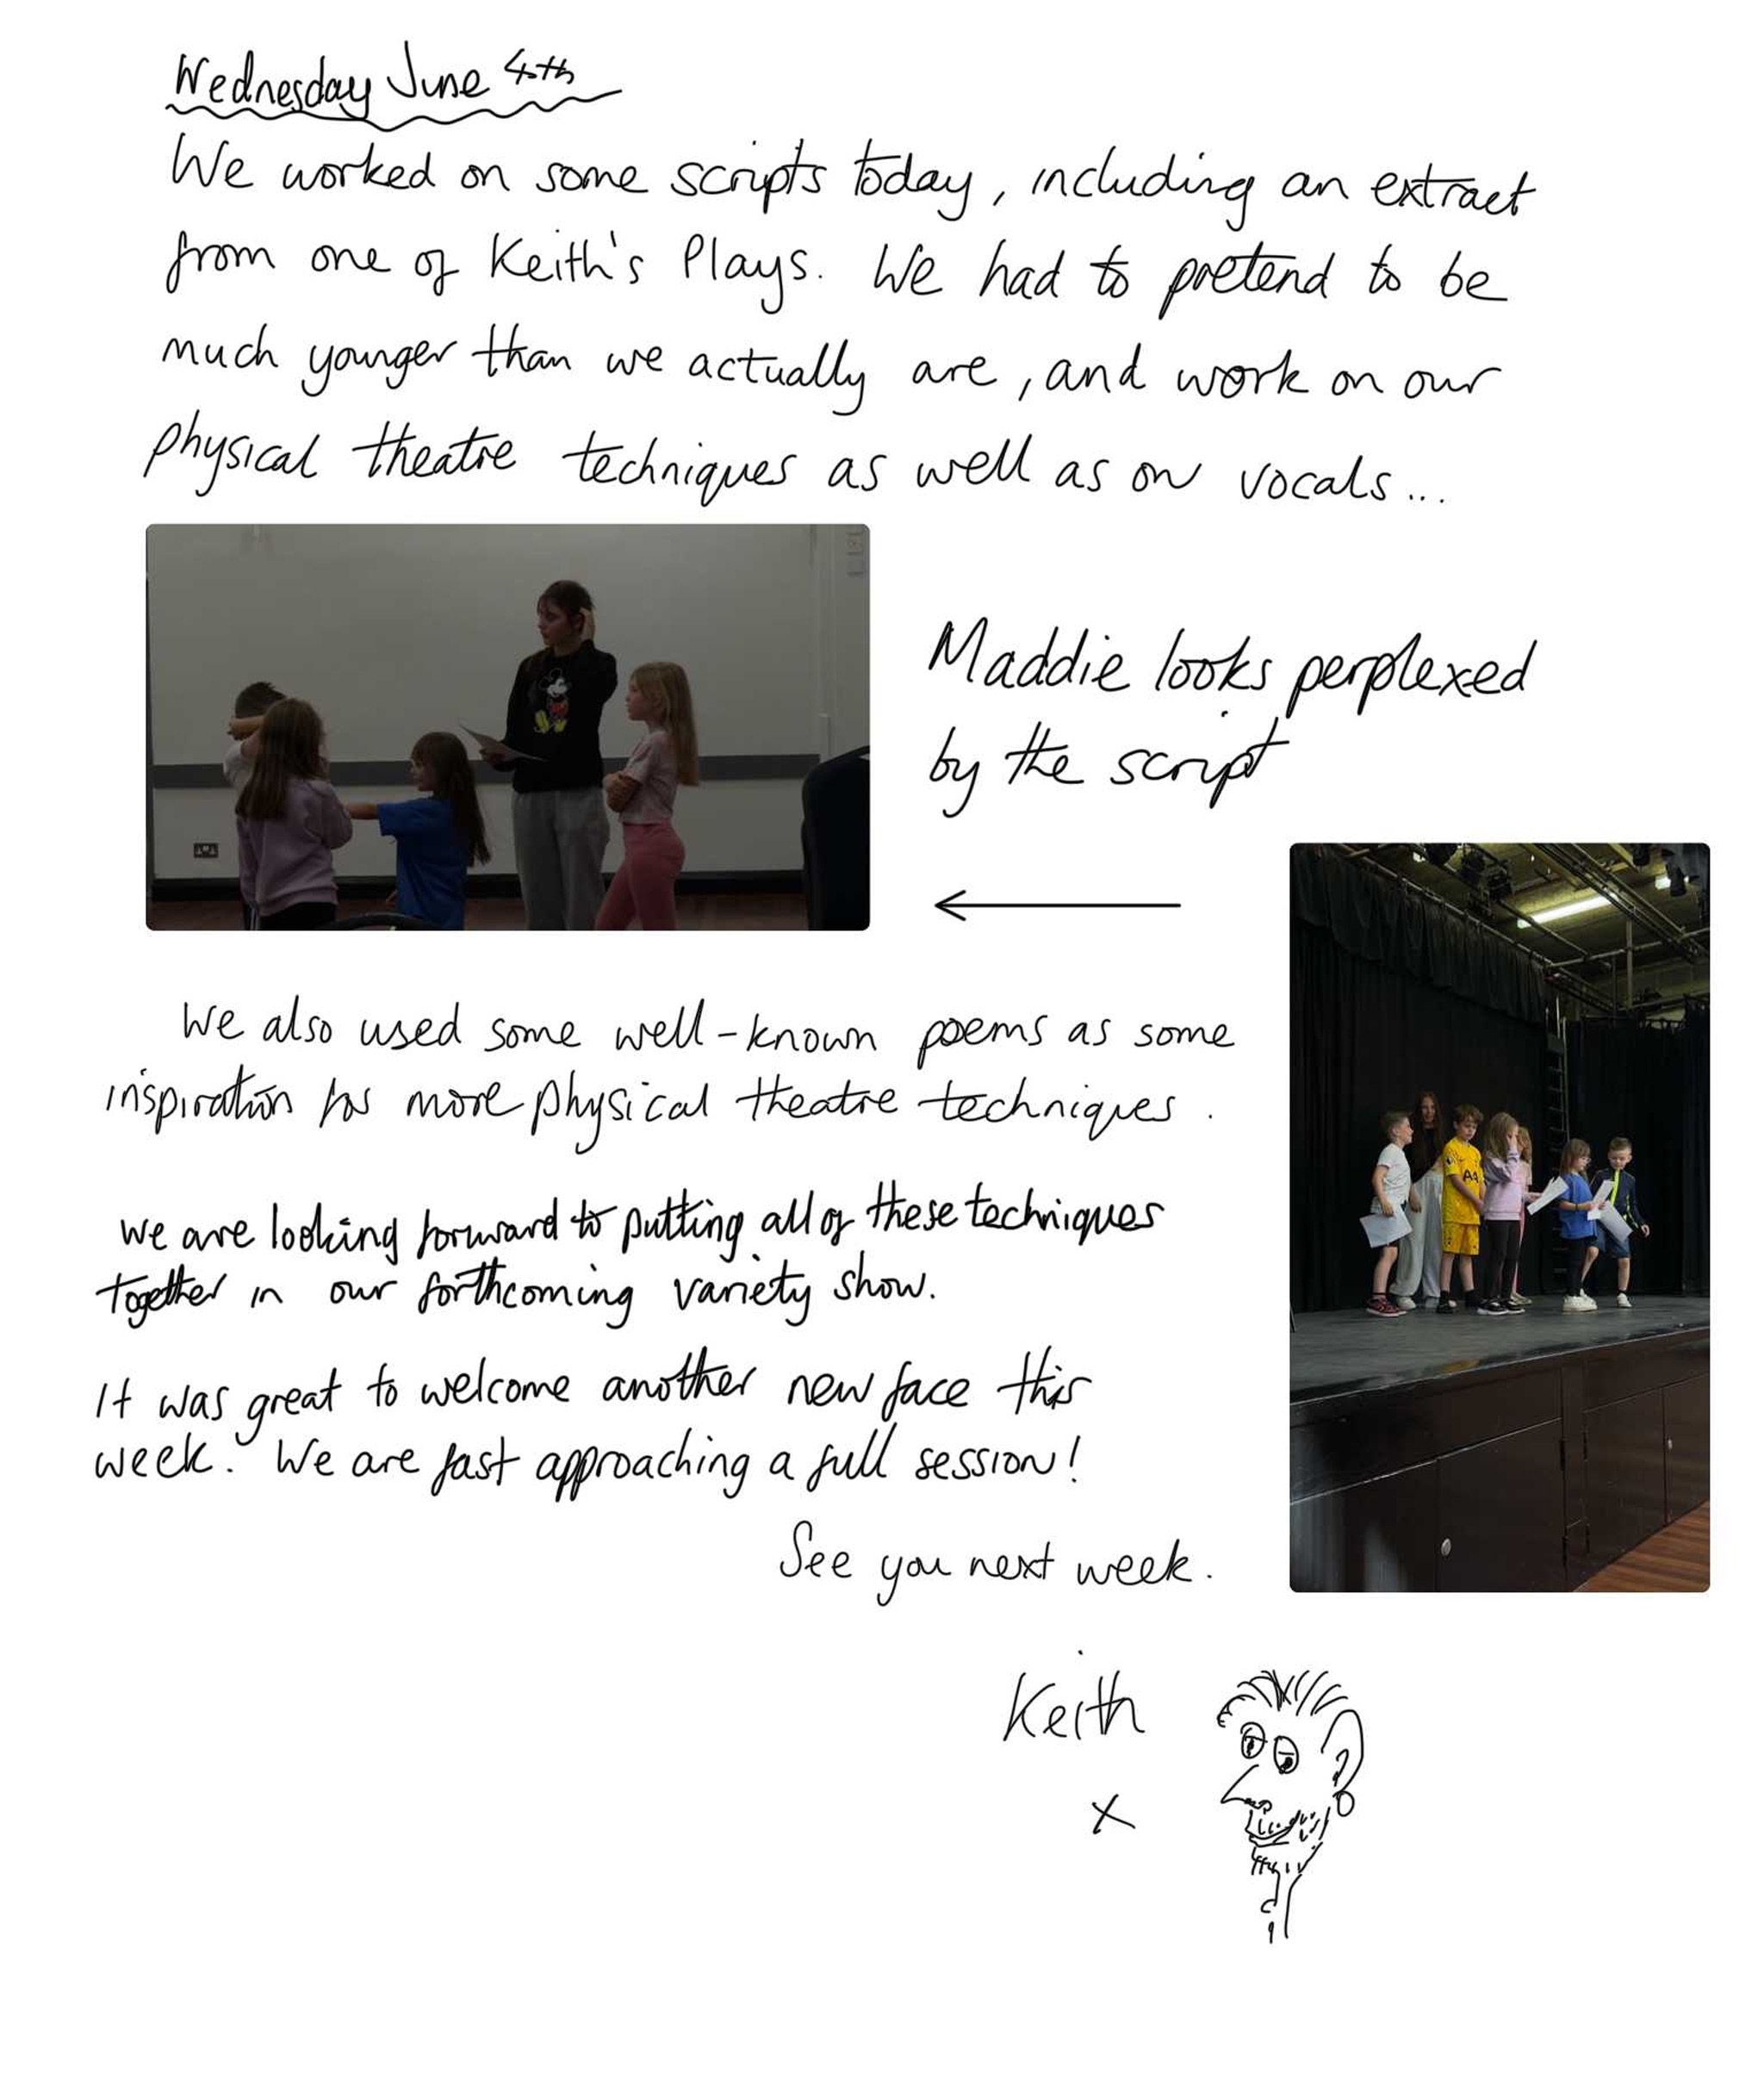 Wednesday June 4th
We worked on some scripts today, including an extract
from one of Keith's Plays. We had to pretend to be
much younger than we actually are, and work on our
physical theatre techniques as well as on vocals...
Maddie looks perplexed
by the script
We also used some well-known poems as some
inspiration for more physical theatre techniques.
We are looking forward to putting all of these techniques
together in our forthcoming variety show.
It was great to welcome another new face this
week. We are fast approaching a full session!
See you next week.
Keith
x
AIA